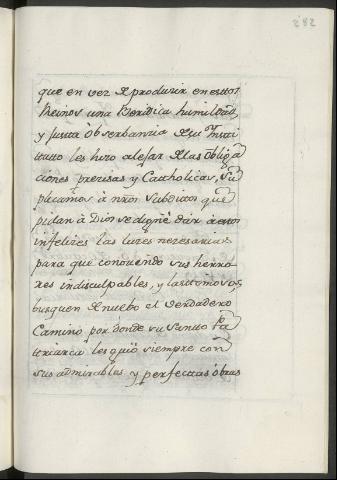 282
que en vez de produzir en estos
Reinos una Beridica humildad,
y Justa obserbanzia de su Insti
tutto les hizo alejar de las oblig.a
ciones prezisas y Cattholicas, Su
plicamos à nrõs Subditos que
pidan à Dios se digne dar à estos
infelizes las luzes nezesarias
para que conoziendo sus herro
res indisculpables, y lastimosos,
busquen de nuebo el Verdadero
Camino por donde su Santo Pa
triarca les guio siempre con
sus admirables, y perfecttas obras